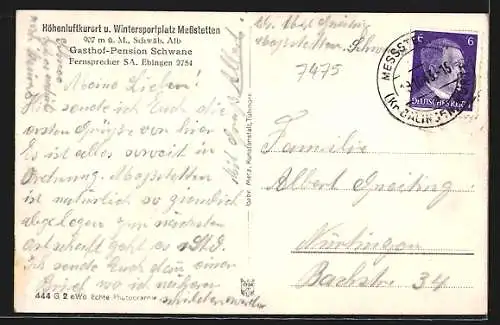 Höhenluftkurort u. Wintersportplatz Meßstetten
907 m ü. M., Schwäb. Alb
Gasthof-Pension Schwane
Fernsprecher SA. Ebingen 2754
Meine Lieben!
Hier sende ich Euch die
ersten Grüße von hier.
Es ist alles soweit in
Ordnung.
ist natürlich so ziemlich
abgelegen zum nächsten
Ortschaft geht es 1 Std.
Ich sende Euch dann einen
Brief wo ich näheres
schildern werde
444 G 2 eWo Echte Photographie
Gebr. Metz, Kunstanstalt, Tübingen
7475
MESSST
(Kr. BALINGEN)
6 6
DEUTSCHES REICH
Familie
Albert Greiting
Nürtingen
Bachstr. 34